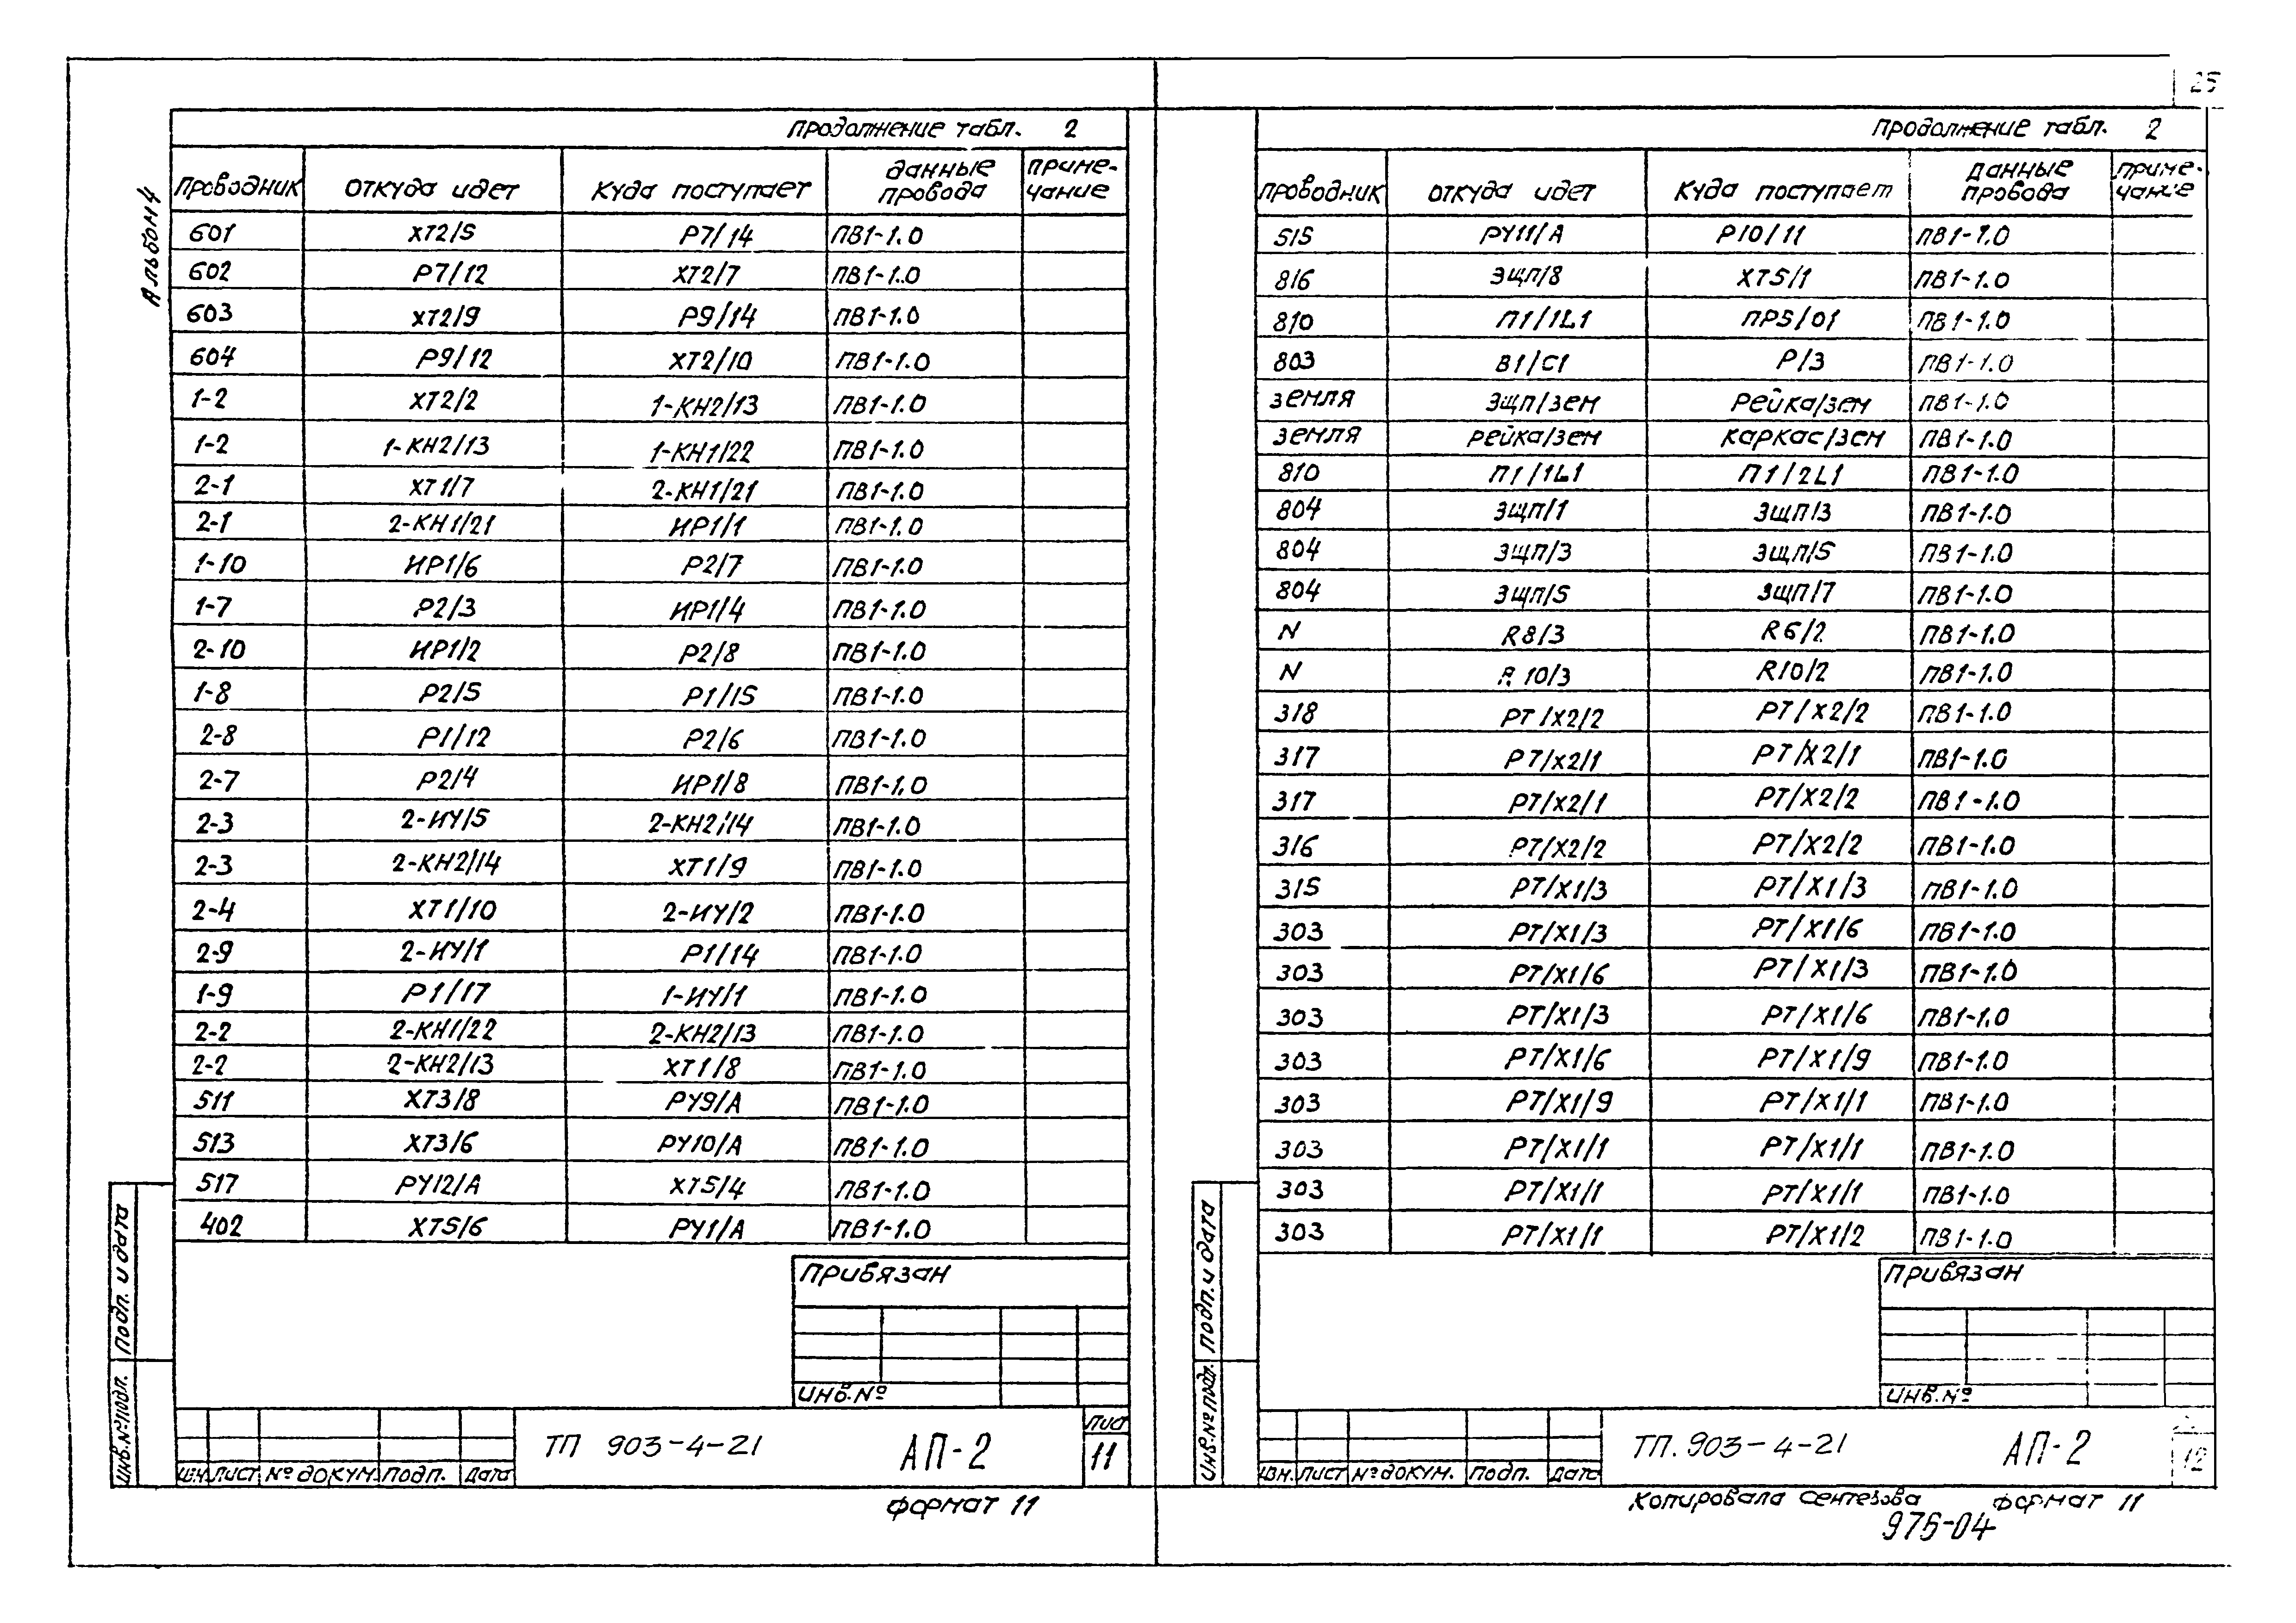 25
Альбом 4
Продолжение табл. 2
Проводник Откуда идет Куда поступает Данные провода Приме-чание
601 ХТ2/5 Р7/14 ПВ1-1.0
602 Р7/12 ХТ2/7 ПВ1-1.0
603 ХТ2/9 Р9/14 ПВ1-1.0
604 Р9/12 ХТ2/10 ПВ1-1.0
1-2 ХТ2/2 1-КН2/13 ПВ1-1.0
1-2 1-КН2/13 1-КН1/22 ПВ1-1.0
2-1 ХТ1/7 2-КН1/21 ПВ1-1.0
2-1 2-КН1/21 ИР1/1 ПВ1-1.0
1-10 ИР1/6 Р2/7 ПВ1-1.0
1-7 Р2/3 ИР1/4 ПВ1-1.0
2-10 ИР1/2 Р2/8 ПВ1-1.0
1-8 Р2/5 Р1/15 ПВ1-1.0
2-8 Р1/12 Р2/6 ПВ1-1.0
2-7 Р2/4 ИР1/8 ПВ1-1.0
2-3 2-ИУ/5 2-КН2/14 ПВ1-1.0
2-3 2-КН2/14 ХТ1/9 ПВ1-1.0
2-4 ХТ1/10 2-ИУ/2 ПВ1-1.0
2-9 2-ИУ/1 Р1/14 ПВ1-1.0
1-9 Р1/17 1-ИУ/1 ПВ1-1.0
2-2 2-КН1/22 2-КН2/13 ПВ1-1.0
2-2 2-КН2/13 ХТ1/8 ПВ1-1.0
511 ХТ3/8 РУ9/А ПВ1-1.0
513 ХТ3/6 РУ10/А ПВ1-1.0
517 РУ12/А ХТ5/4 ПВ1-1.0
402 ХТ5/6 РУ1/А ПВ1-1.0
Привязан
Инв.№
Подп. и дата
Инв.№ подп.
Изм. Лист № докум. Подп. Дата
ТП 903-4-21 АП-2
Лист
11
Формат 11
Продолжение табл. 2
Проводник Откуда идет Куда поступает Данные провода Приме-чание
515 РУ11/А Р10/11 ПВ1-1.0
816 ЭЩП/8 ХТ5/1 ПВ1-1.0
810 П1/1L1 ПР5/01 ПВ1-1.0
803 В1/С1 Р/3 ПВ1-1.0
Земля ЭЩП/зем Рейка/зем ПВ1-1.0
Земля Рейка/зем Каркас/зем ПВ1-1.0
810 П1/1L1 П1/2L1 ПВ1-1.0
804 ЭЩП/1 ЭЩП/3 ПВ1-1.0
804 ЭЩП/3 ЭЩП/5 ПВ1-1.0
804 ЭЩП/5 ЭЩП/7 ПВ1-1.0
N R8/3 R6/2 ПВ1-1.0
N R10/3 R10/2 ПВ1-1.0
318 РТ/Х2/2 РТ/Х2/2 ПВ1-1.0
317 РТ/Х2/1 РТ/Х2/1 ПВ1-1.0
317 РТ/Х2/1 РТ/Х2/2 ПВ1-1.0
316 РТ/Х2/2 РТ/Х2/2 ПВ1-1.0
315 РТ/Х1/3 РТ/Х1/3 ПВ1-1.0
303 РТ/Х1/3 РТ/Х1/6 ПВ1-1.0
303 РТ/Х1/6 РТ/Х1/3 ПВ1-1.0
303 РТ/Х1/3 РТ/Х1/6 ПВ1-1.0
303 РТ/Х1/6 РТ/Х1/9 ПВ1-1.0
303 РТ/Х1/9 РТ/Х1/1 ПВ1-1.0
303 РТ/Х1/1 РТ/Х1/1 ПВ1-1.0
303 РТ/Х1/1 РТ/Х1/1 ПВ1-1.0
303 РТ/Х1/1 РТ/Х1/2 ПВ1-1.0
Привязан
Инв.№
Подп. и дата
Инв.№ подп.
Изм. Лист № докум. Подп. Дата
ТП.903-4-21 АП-2
12
Копировала Формат 11
975-04